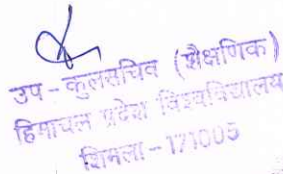 उप - कुलसचिव (शैक्षणिक)
हिमाचल प्रदेश विश्वविद्यालय
शिमला - 171005